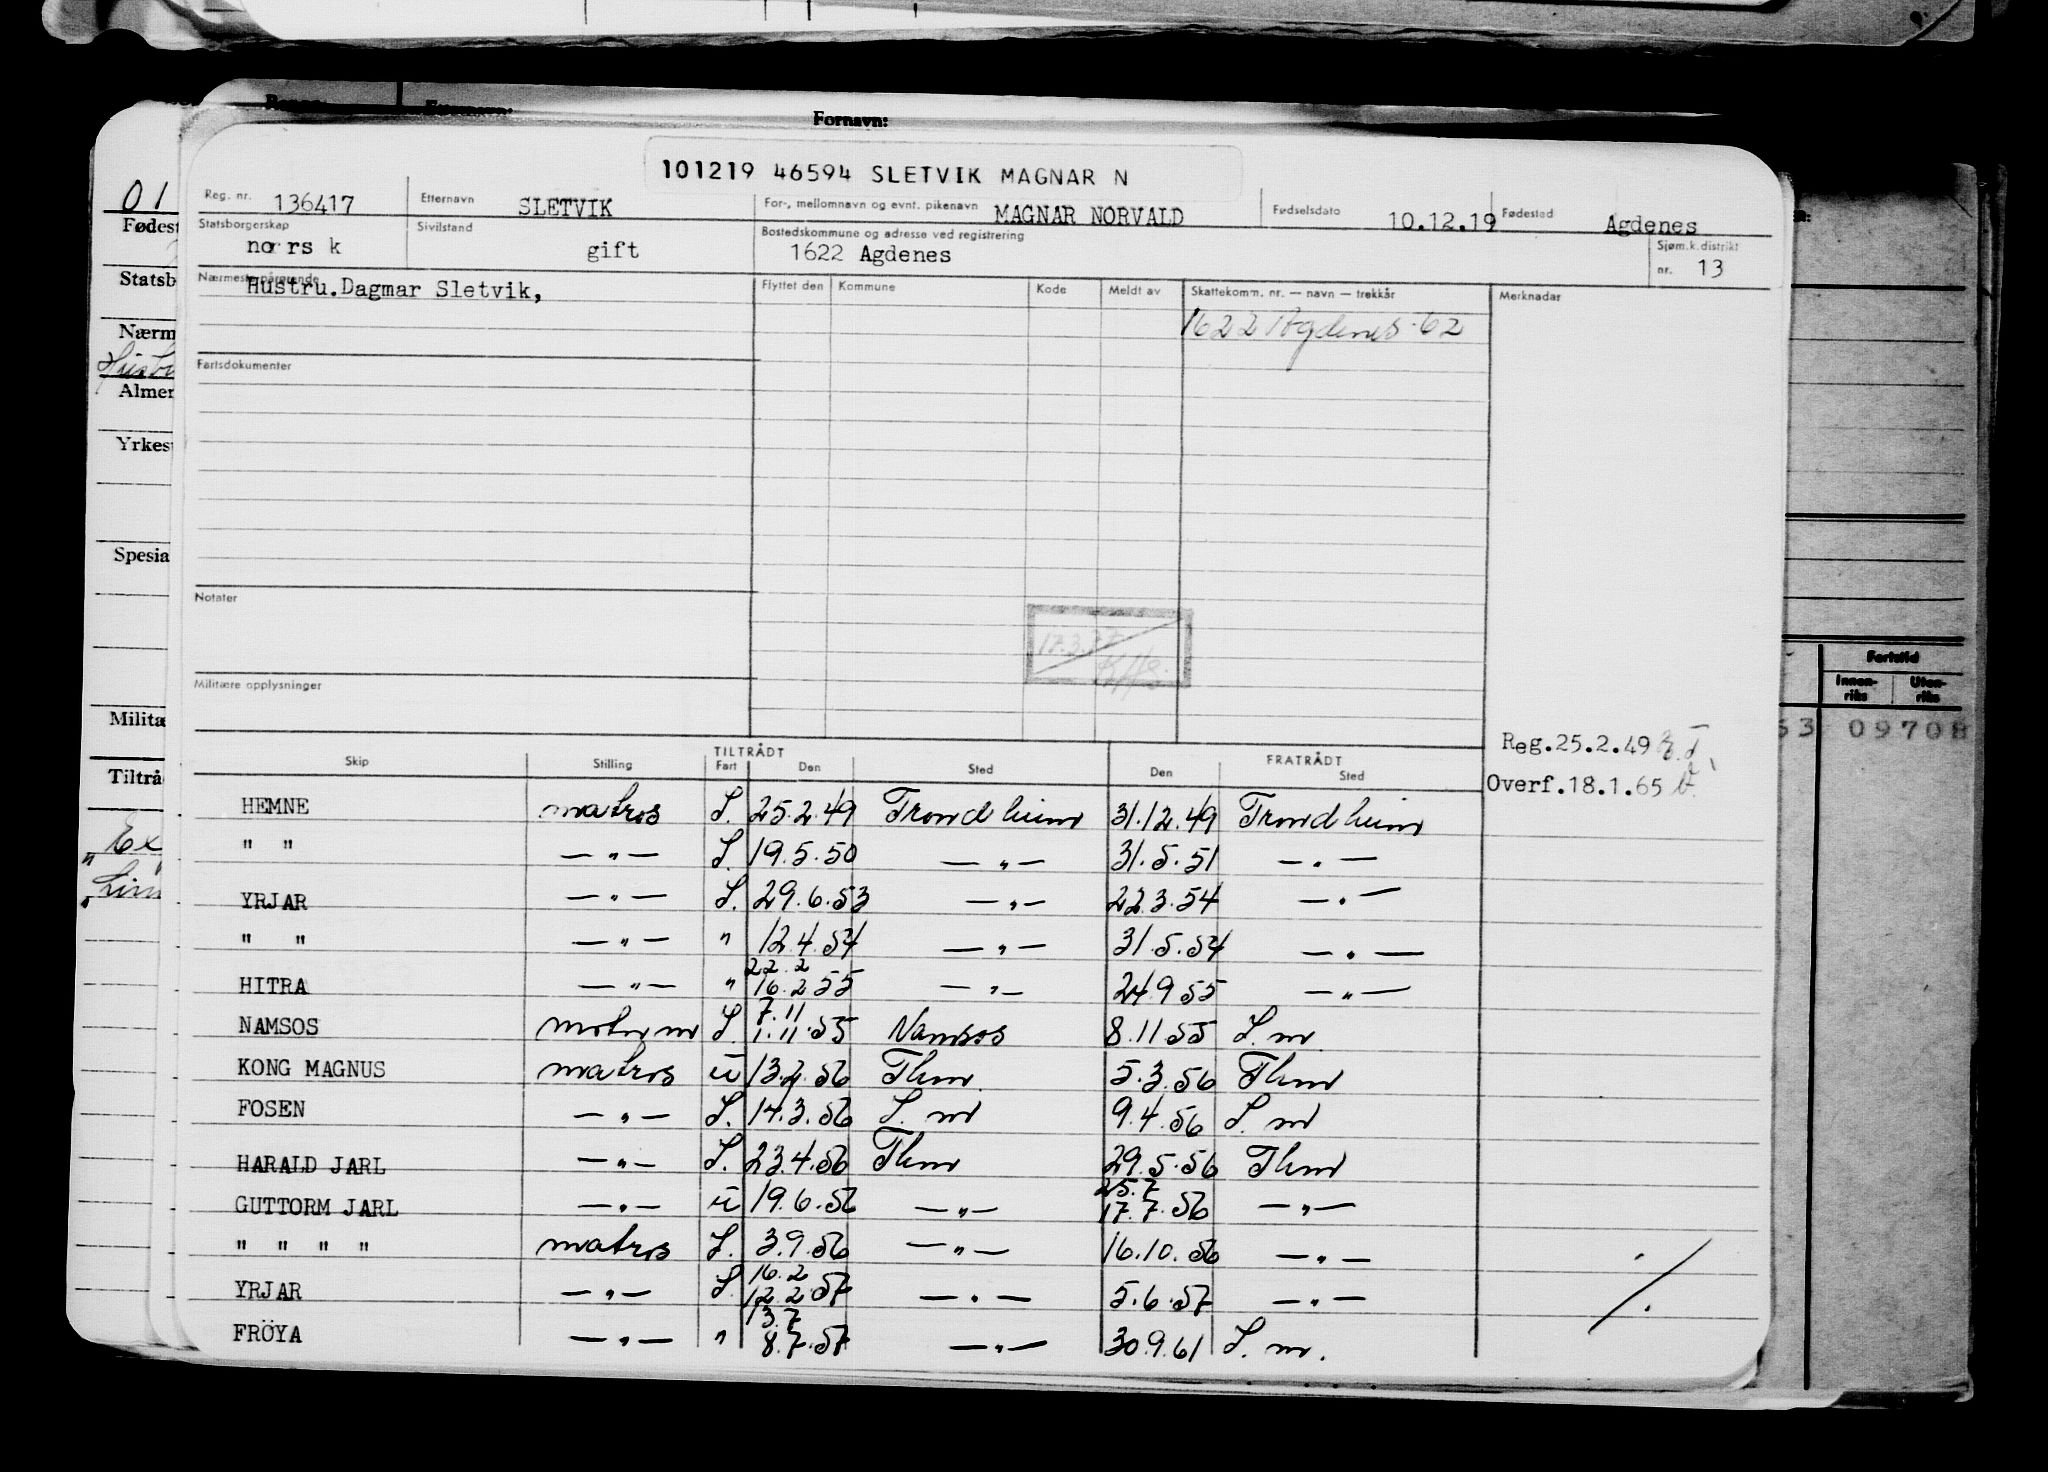 Fornavn:
101219 46594 SLETVIK MAGNAR N
Reg. nr. 136417 Etternavn SLETVIK For-, mellomnavn og evnt. pikenavn MAGNAR NORVALD Fødselsdato 10.12.19 Fødested Agdenes
Statsborgerskap norsk Sivilstand gift Bostedskommune og adresse ved registrering 1622 Agdenes Sjøm.k.distrikt nr. 13
Nærmeste pårørende Hustru.Dagmar Sletvik,
Flyttet den Kommune Kode Meldt av Skattekomm. nr. — navn — trekkår Merknader
1622 Agdenes 62
Fartsdokumenter
Notater
Militære opplysninger
Reg.25.2.49
Overf.18.1.65
TILTRÅDT FRATRÅDT
Skip Stilling Fart Den Sted Den Sted
HEMNE matros I. 25.2.49 Trondheim 31.12.49 Trondheim
" " — " — I. 19.5.50 — " — 31.5.51 — " —
YRJAR — " — I. 29.6.53 — " — 22.3.54 — " —
" " — " — " 12.4.54 — " — 31.5.54 — " —
22.2
HITRA — " — " 16.2.55 — " — 24.9.55 — " —
7.11
NAMSOS I. 1.11.55 Namsos 8.11.55 I. m
KONG MAGNUS matros u 13.2.56 Thm. 5.3.56 Thm
FOSEN — " — I. 14.3.56 I. m 9.4.56 I. m
HARALD JARL — " — I. 23.4.56 Thm 29.5.56 Thm
25.7
GUTTORM JARL — " — u 19.6.56 — " — 17.7.56 — " —
" " " " matros I. 3.9.56 — " — 16.10.56 — " —
16.2
YRJAR — " — I. 12.2.57 — " — 5.6.57 — " —
13.7
FRÖYA — " — " 8.7.57 — " — 30.9.61 I. m.
01
Fødest
Statsb
Nærm
Almen
Yrkes
Spesia
Militæ
Tiltrå
Fartstid
Innen-riks Uten-riks
53 09708